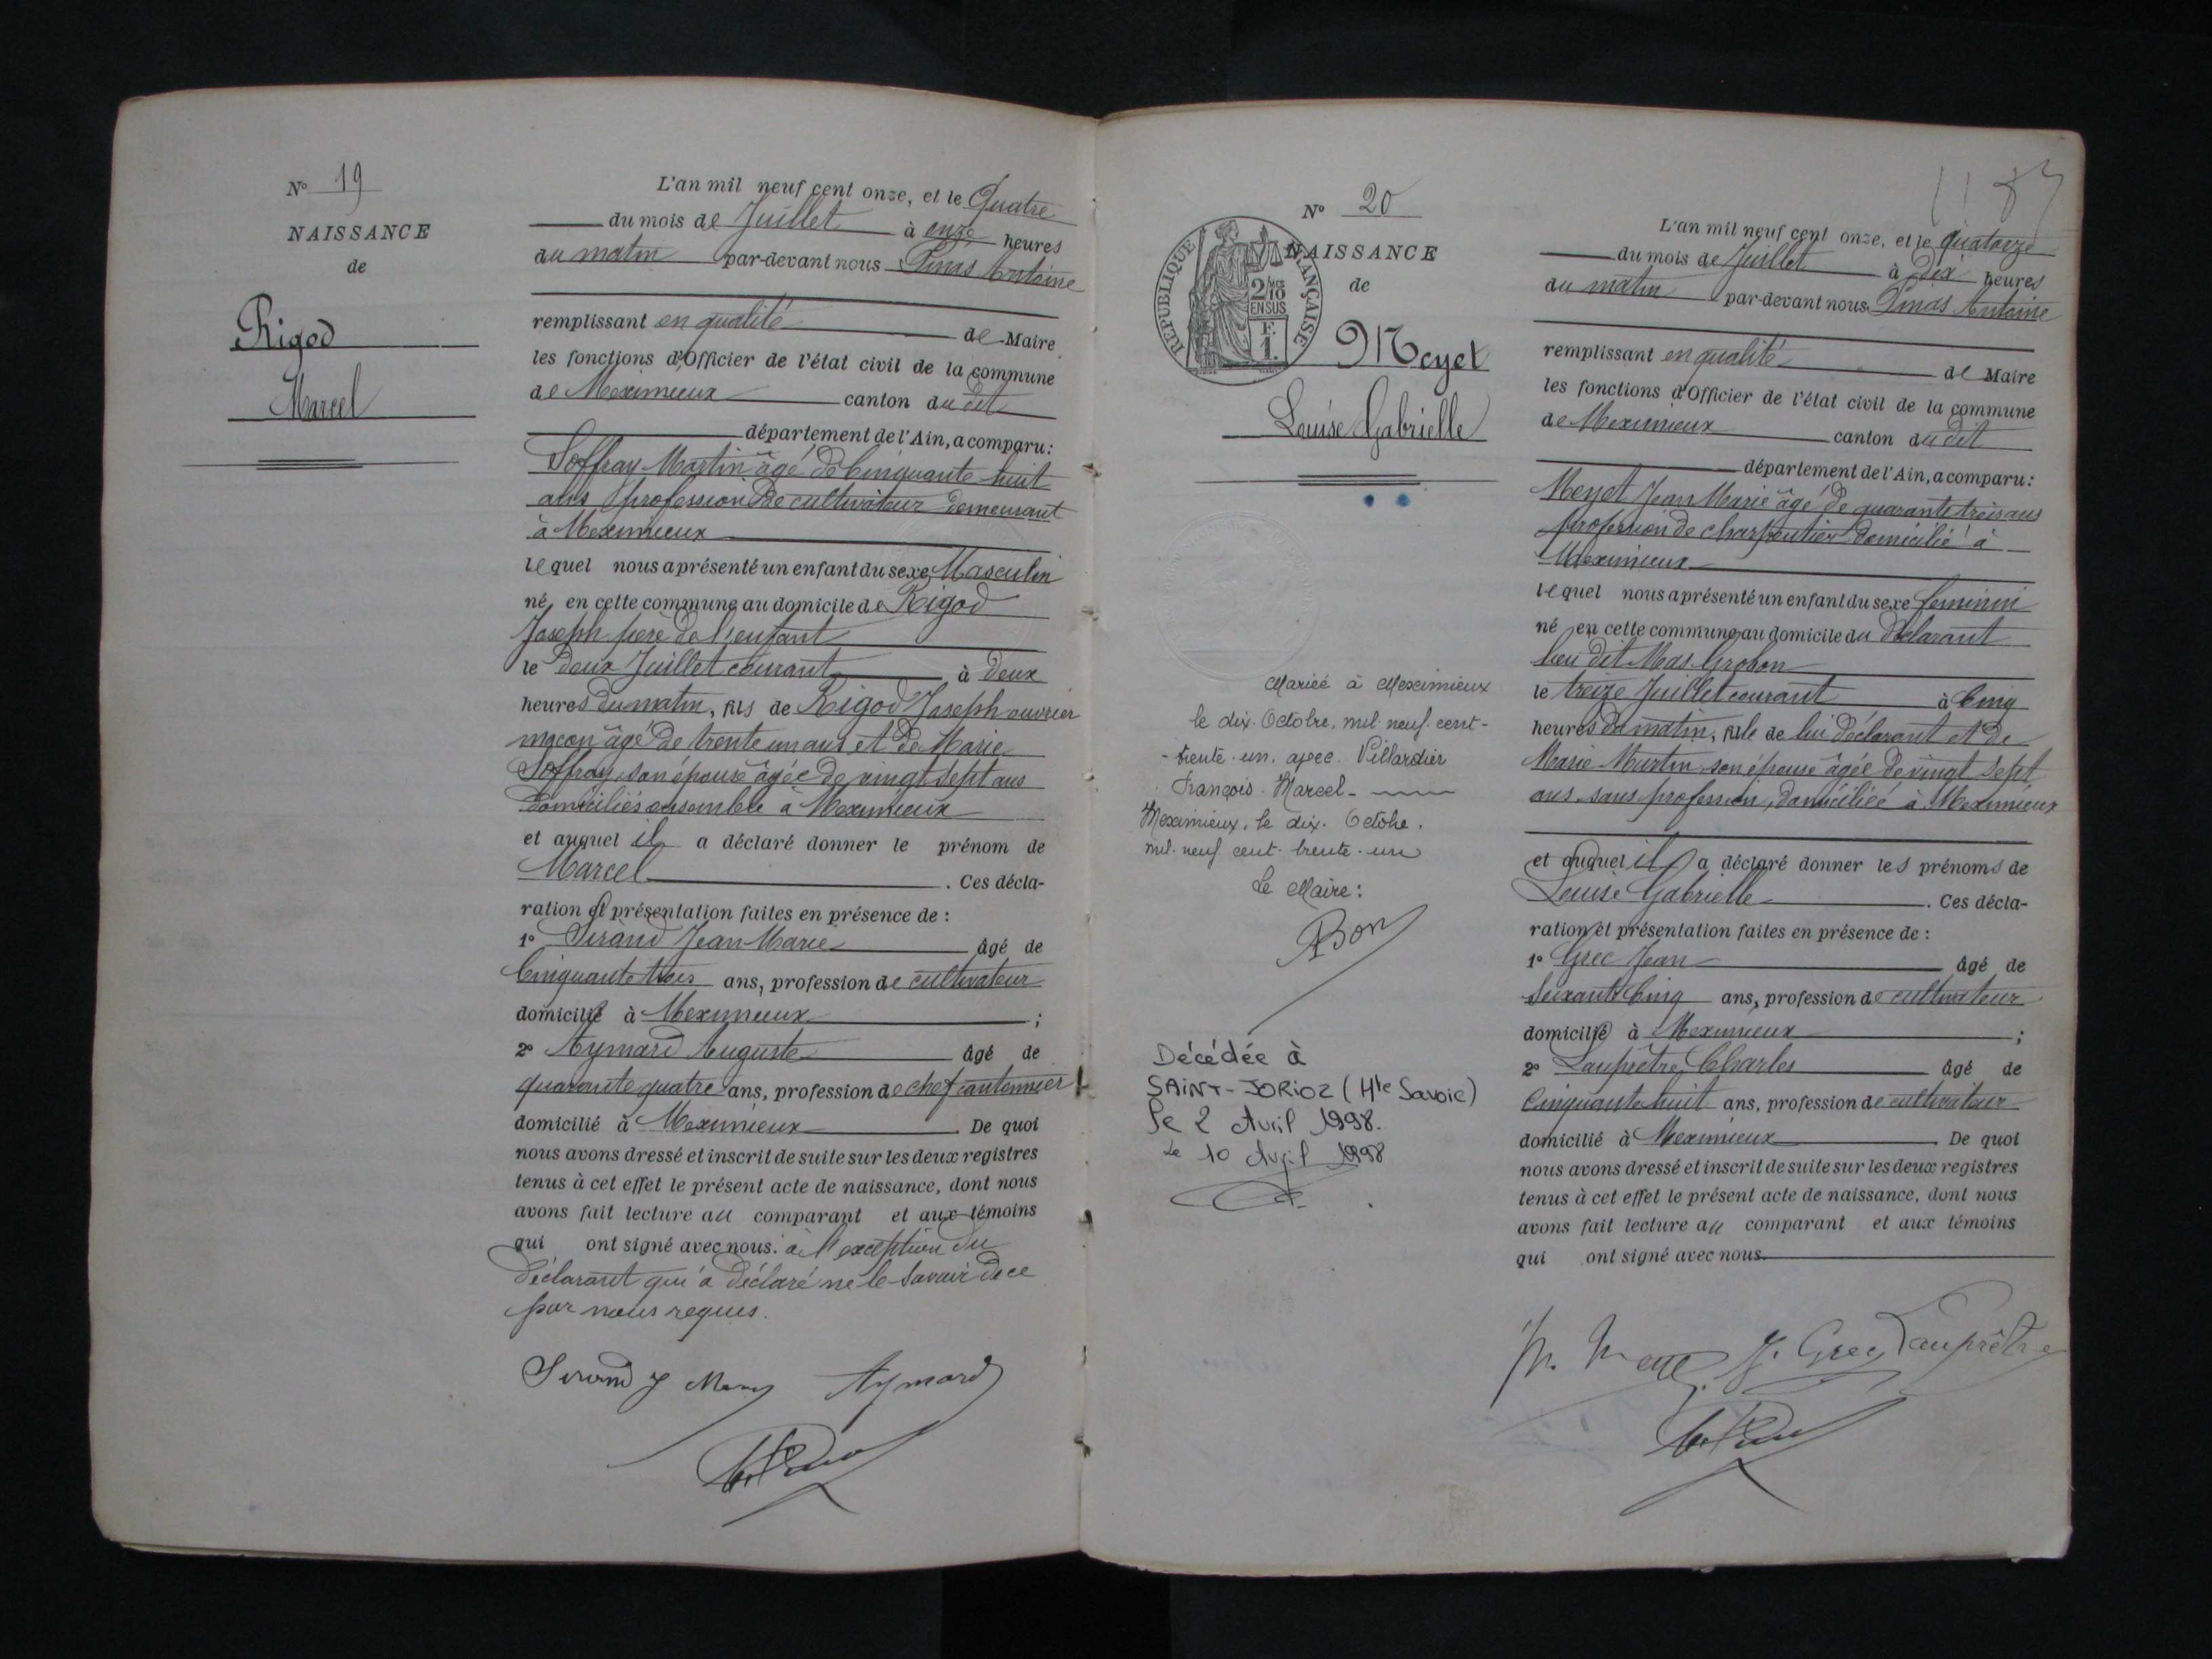 N° 19
NAISSANCE
de
Rigod
Marcel
L'an mil neuf cent onze, et le Quatre
du mois de Juillet à onze heures
du matin par-devant nous Pinas Antoine
remplissant en qualité de Maire
les fonctions d'Officier de l'état civil de la commune
de Meximieux canton du dit
département de l'Ain, a comparu:
Soffray Martin âgé de Cinquante huit
ans profession de cultivateur demeurant
à Meximieux
lequel nous a présenté un enfant du sexe Masculin
né en cette commune au domicile de Rigod
Joseph père de l'enfant
le deux Juillet courant à deux
heures du matin, fils de Rigod Joseph ouvrier
maçon âgé de trente un ans et de Marie
Soffray son épouse âgée de vingt sept ans
domiciliés ensemble à Meximieux
et auquel il a déclaré donner le prénom de
Marcel. Ces décla-
ration et présentation faites en présence de :
1° Sirand Jean Marie âgé de
Cinquante trois ans, profession de cultivateur
domicilié à Meximieux ;
2° Aymard Auguste âgé de
quarante quatre ans, profession de chef cantonnier
domicilié à Meximieux. De quoi
nous avons dressé et inscrit de suite sur les deux registres
tenus à cet effet le présent acte de naissance, dont nous
avons fait lecture au comparant et aux témoins
qui ont signé avec nous. à l'exception du
déclarant qui a déclaré ne le savoir de ce
par nous requis.
Sirand J Mary Aymard
N° 20
RÉPUBLIQUE FRANÇAISE
2/10
EN SUS
F.
1.
NAISSANCE
de
Meyet
Louise Gabrielle
Mariée à Meximieux
le dix. Octobre, mil. neuf. cent-
-trente. un. avec. Villardier
François. Marcel-
Meximieux, le dix. Octobre.
mil. neuf cent. trente. un
Le Maire:
Bon
Décédée à
SAINT-JORIOZ (Hte Savoie)
le 2 Avril 1998.
Le 10 Avril 1998
L'an mil neuf cent onze, et le quatorze
du mois de Juillet à Dix heures
du matin par-devant nous Pinas Antoine
remplissant en qualité de Maire
les fonctions d'Officier de l'état civil de la commune
de Meximieux canton du dit
département de l'Ain, a comparu:
Meyet Jean Marie âgé de quarante trois ans
profession de charpentier domicilié à
Meximieux
lequel nous a présenté un enfant du sexe féminin
né en cette commune au domicile du déclarant
lieu dit Mas Grobon
le treize Juillet courant à Cinq
heures du matin, fille de lui déclarant et de
Marie Martin son épouse âgée de vingt sept
ans, sans profession, domiciliée à Meximieux
et auquel il a déclaré donner les prénoms de
Louise Gabrielle. Ces décla-
ration et présentation faites en présence de :
1° Grec Jean âgé de
Soixante Cinq ans, profession de cultivateur
domicilié à Meximieux ;
2° Lauprêtre Charles âgé de
Cinquante huit ans, profession de cultivateur
domicilié à Meximieux. De quoi
nous avons dressé et inscrit de suite sur les deux registres
tenus à cet effet le présent acte de naissance, dont nous
avons fait lecture au comparant et aux témoins
qui ont signé avec nous.
J. Grec Lauprêtre